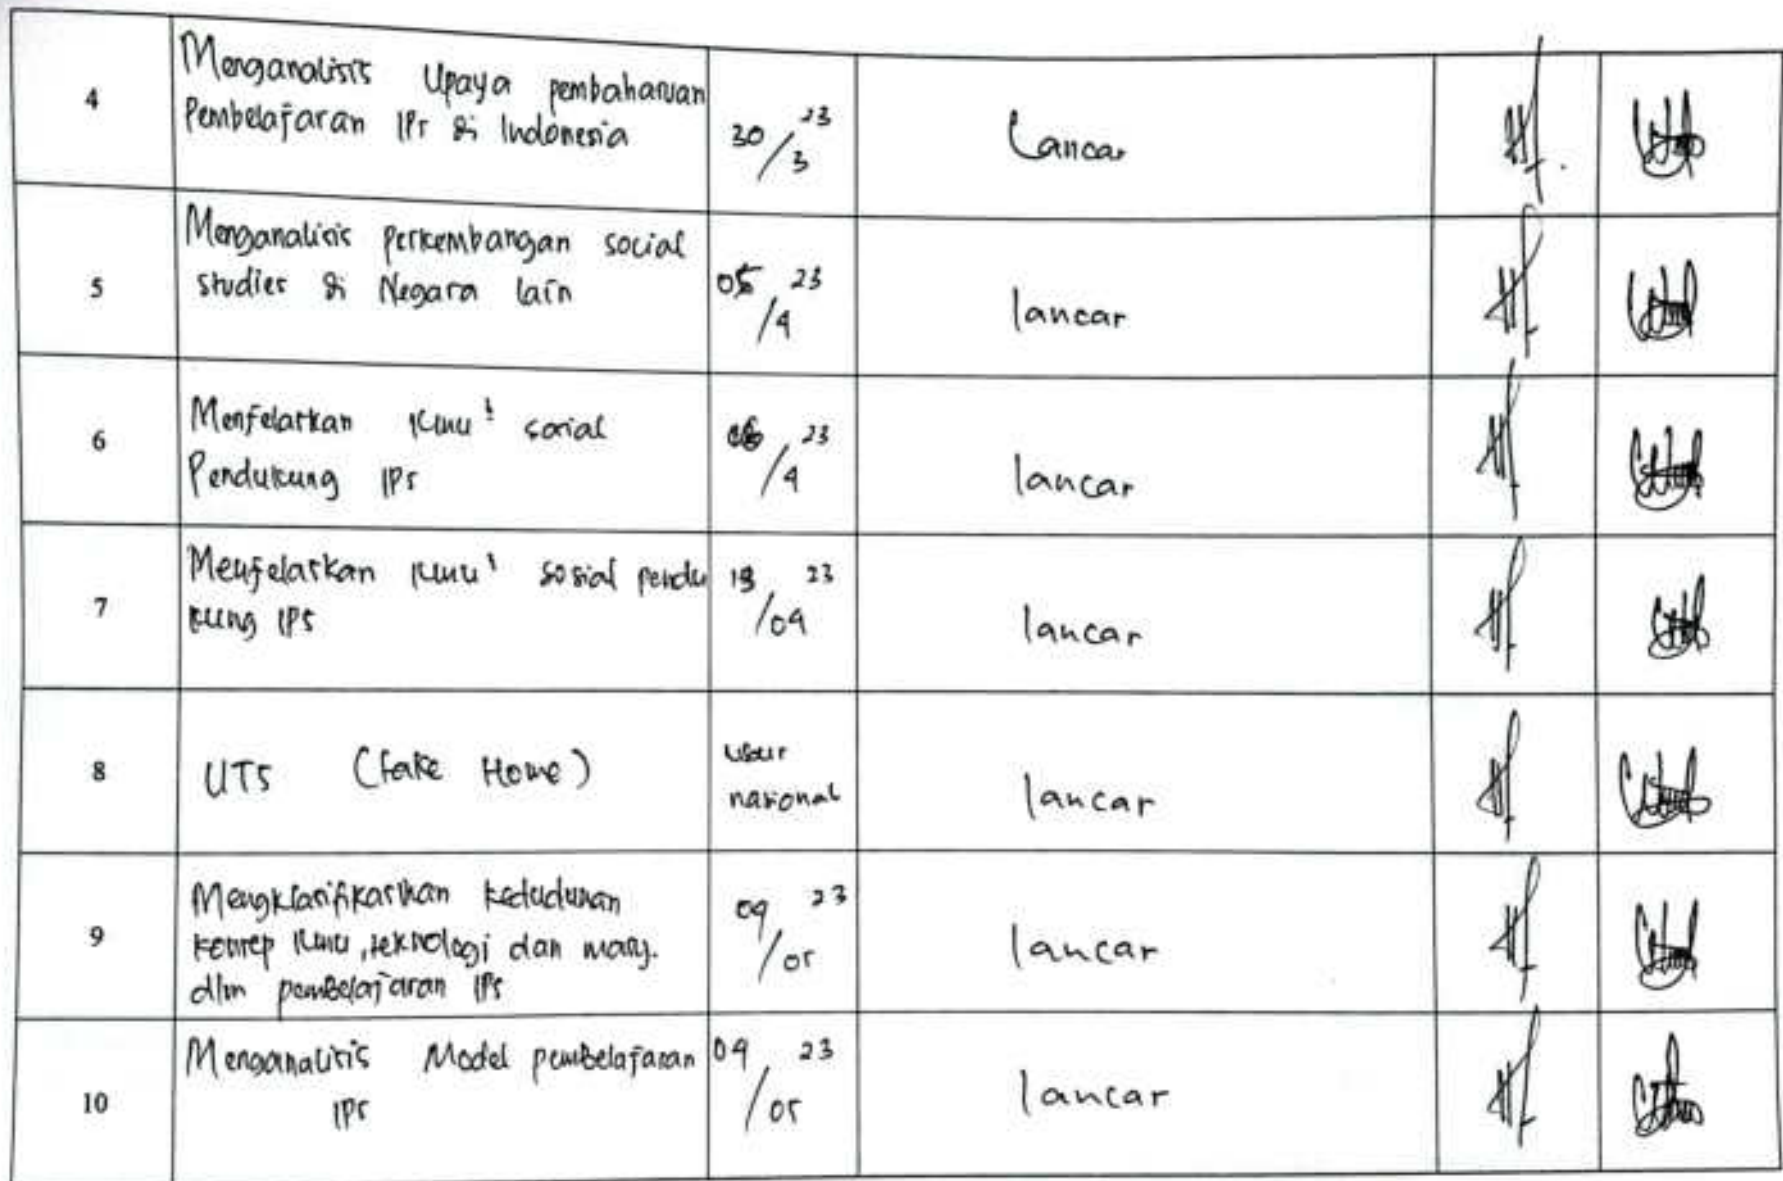 4
Menganalisis Upaya pembaharuan
Pembelajaran IPS di Indonesia
30/3 23
Lancar
5
Menganalisis perkembangan social
studies di Negara lain
05/4 23
lancar
6
Menjelaskan ilmu² sosial
Pendukung IPS
06/4 23
lancar
7
Menjelaskan ilmu² sosial pendu
kung IPS
13/04 23
lancar
8
UTS (Take Home)
libur
nasional
lancar
9
Mengklasifikasikan kedudukan
konsep ilmu, teknologi dan masy.
dlm pembelajaran IPS
09/05 23
lancar
10
Menganalisis Model pembelajaran
IPS
09/05 23
lancar